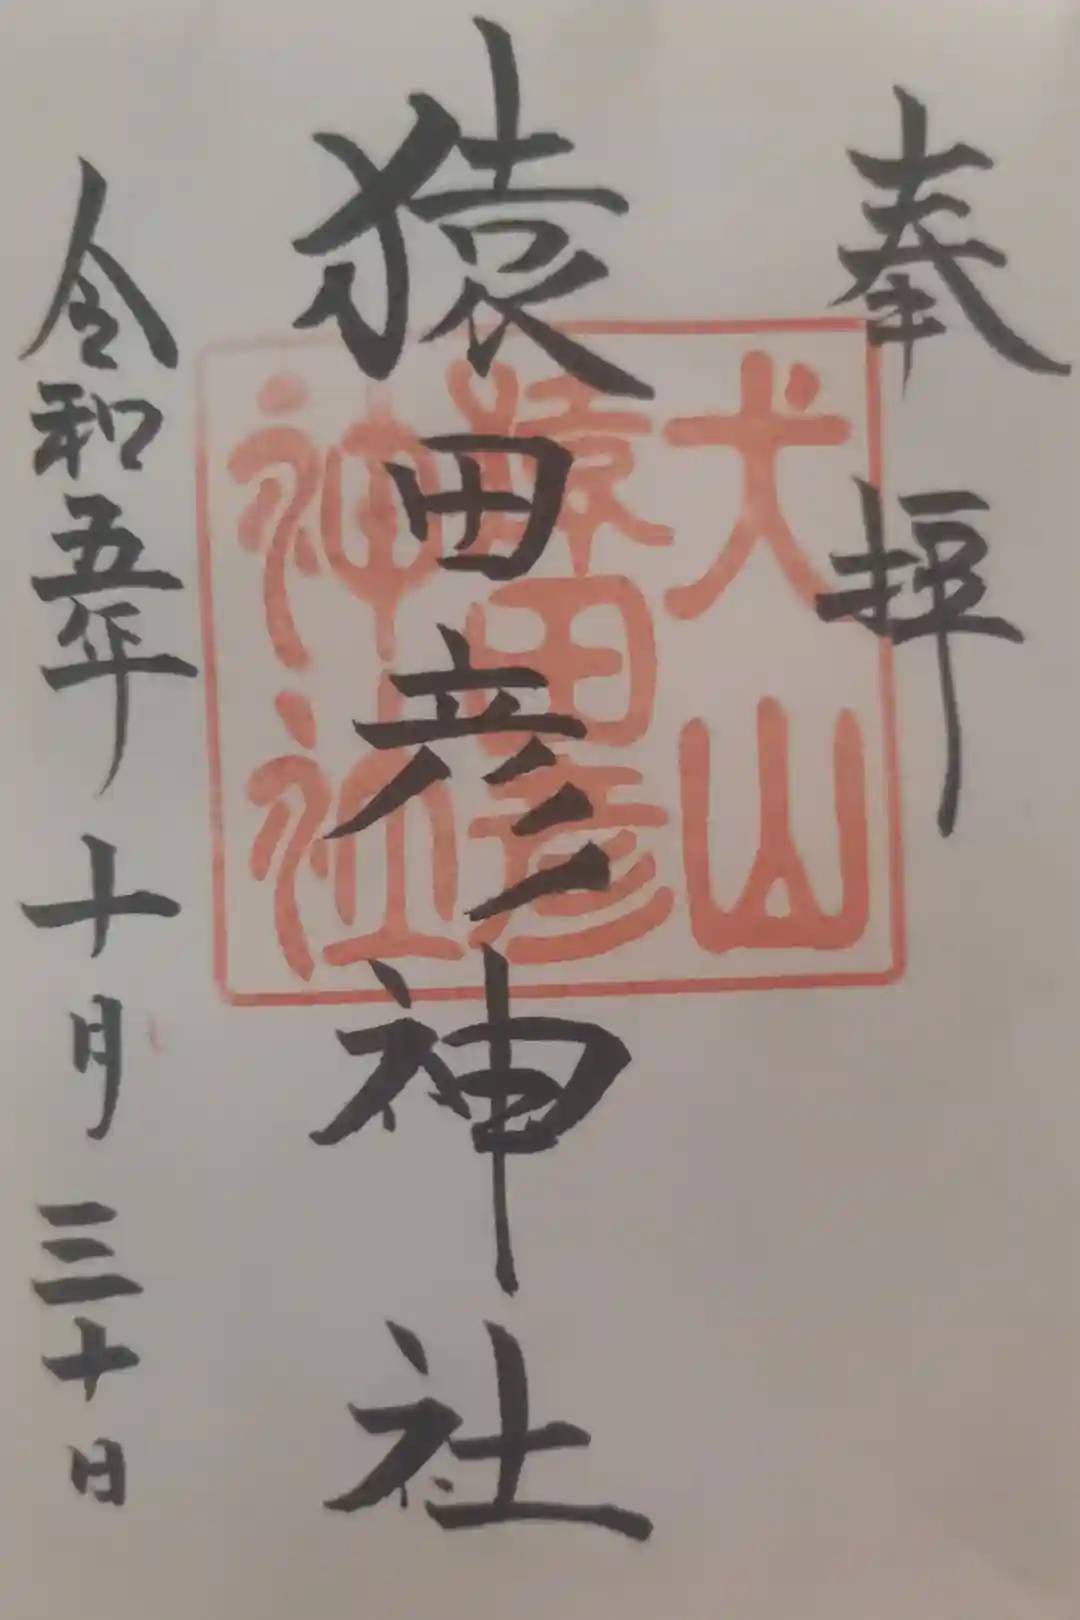 奉拝
犬山
猿田彦
神社
猿田彦神社
令和五年十月三十日